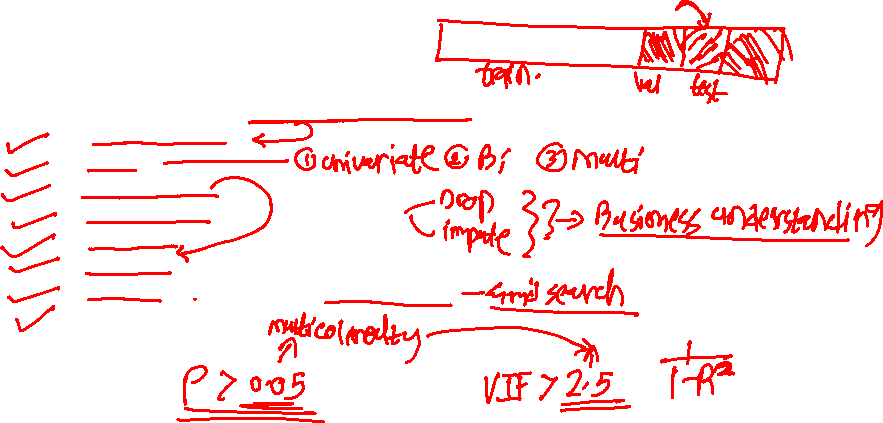 train. val test
① univariate ② Bi ③ multi
Drop
impute } } → Business understanding
- Grid search
multicolinealty
P > 0.05 VIF > 2.5 1/1-R²